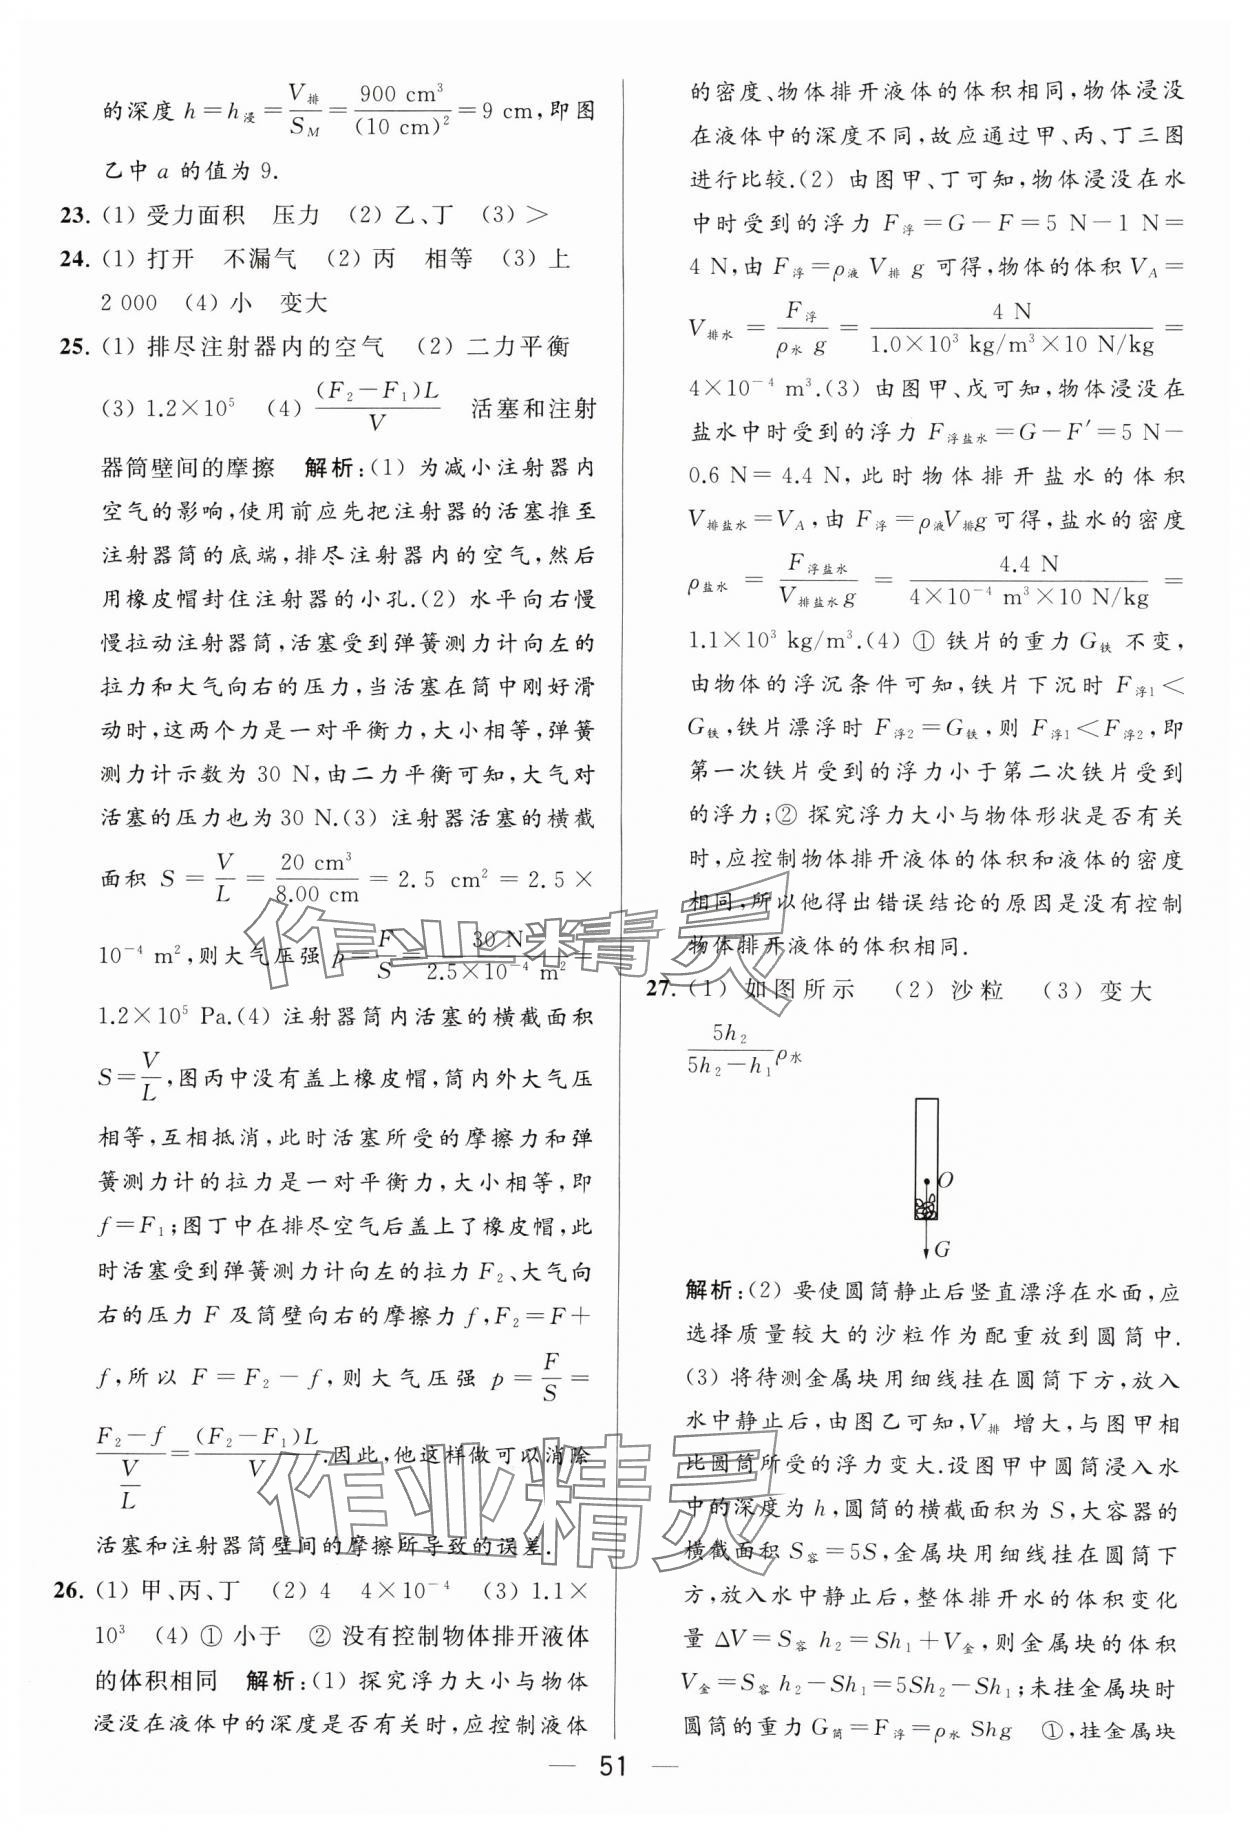 的深度 h＝h浸＝V排/S_M＝900 cm³/(10 cm)²＝9 cm,即图
乙中 a 的值为 9.
23. (1) 受力面积　压力　(2) 乙、丁　(3) ＞
24. (1) 打开　不漏气　(2) 丙　相等　(3) 上
2 000　(4) 小　变大
25. (1) 排尽注射器内的空气　(2) 二力平衡
(3) 1.2×10⁵　(4) (F₂－F₁)L/V　活塞和注射
器筒壁间的摩擦　解析:(1) 为减小注射器内
空气的影响,使用前应先把注射器的活塞推至
注射器筒的底端,排尽注射器内的空气,然后
用橡皮帽封住注射器的小孔.(2) 水平向右慢
慢拉动注射器筒,活塞受到弹簧测力计向左的
拉力和大气向右的压力,当活塞在筒中刚好滑
动时,这两个力是一对平衡力,大小相等,弹簧
测力计示数为 30 N,由二力平衡可知,大气对
活塞的压力也为 30 N.(3) 注射器活塞的横截
面积 S＝V/L＝20 cm³/8.00 cm＝2.5 cm²＝2.5×
10⁻⁴ m²,则大气压强 p＝F/S＝30 N/(2.5×10⁻⁴ m²)＝
1.2×10⁵ Pa.(4) 注射器筒内活塞的横截面积
S＝V/L,图丙中没有盖上橡皮帽,筒内外大气压
相等,互相抵消,此时活塞所受的摩擦力和弹
簧测力计的拉力是一对平衡力,大小相等,即
f＝F₁;图丁中在排尽空气后盖上了橡皮帽,此
时活塞受到弹簧测力计向左的拉力 F₂、大气向
右的压力 F 及筒壁向右的摩擦力 f,F₂＝F＋
f,所以 F＝F₂－f,则大气压强 p＝F/S＝
(F₂－f)/(V/L)＝(F₂－F₁)L/V.因此,他这样做可以消除
活塞和注射器筒壁间的摩擦所导致的误差.
26. (1) 甲、丙、丁　(2) 4　4×10⁻⁴　(3) 1.1×
10³　(4) ① 小于　② 没有控制物体排开液体
的体积相同　解析:(1) 探究浮力大小与物体
浸没在液体中的深度是否有关时,应控制液体
的密度、物体排开液体的体积相同,物体浸没
在液体中的深度不同,故应通过甲、丙、丁三图
进行比较.(2) 由图甲、丁可知,物体浸没在水
中时受到的浮力 F浮＝G－F＝5 N－1 N＝
4 N,由 F浮＝ρ液 V排 g 可得,物体的体积 V_A＝
V排水＝F浮/(ρ水 g)＝4 N/(1.0×10³ kg/m³×10 N/kg)＝
4×10⁻⁴ m³.(3) 由图甲、戊可知,物体浸没在
盐水中时受到的浮力 F浮盐水＝G－F′＝5 N－
0.6 N＝4.4 N,此时物体排开盐水的体积
V排盐水＝V_A,由 F浮＝ρ液V排g 可得,盐水的密度
ρ盐水＝F浮盐水/(V排盐水g)＝4.4 N/(4×10⁻⁴ m³×10 N/kg)＝
1.1×10³ kg/m³.(4) ① 铁片的重力 G铁 不变,
由物体的浮沉条件可知,铁片下沉时 F浮1＜
G铁,铁片漂浮时 F浮2＝G铁,则 F浮1＜F浮2,即
第一次铁片受到的浮力小于第二次铁片受到
的浮力;② 探究浮力大小与物体形状是否有关
时,应控制物体排开液体的体积和液体的密度
相同,所以他得出错误结论的原因是没有控制
物体排开液体的体积相同.
27. (1) 如图所示　(2) 沙粒　(3) 变大
5h₂/(5h₂－h₁)ρ水
O
G
解析:(2) 要使圆筒静止后竖直漂浮在水面,应
选择质量较大的沙粒作为配重放到圆筒中.
(3) 将待测金属块用细线挂在圆筒下方,放入
水中静止后,由图乙可知,V排 增大,与图甲相
比圆筒所受的浮力变大.设图甲中圆筒浸入水
中的深度为 h,圆筒的横截面积为 S,大容器的
横截面积 S容＝5S,金属块用细线挂在圆筒下
方,放入水中静止后,整体排开水的体积变化
量 ΔV＝S容 h₂＝Sh₁＋V金,则金属块的体积
V金＝S容 h₂－Sh₁＝5Sh₂－Sh₁;未挂金属块时
圆筒的重力 G筒＝F浮＝ρ水 Shg　①,挂金属块
— 51 —
作业精灵
作业精灵